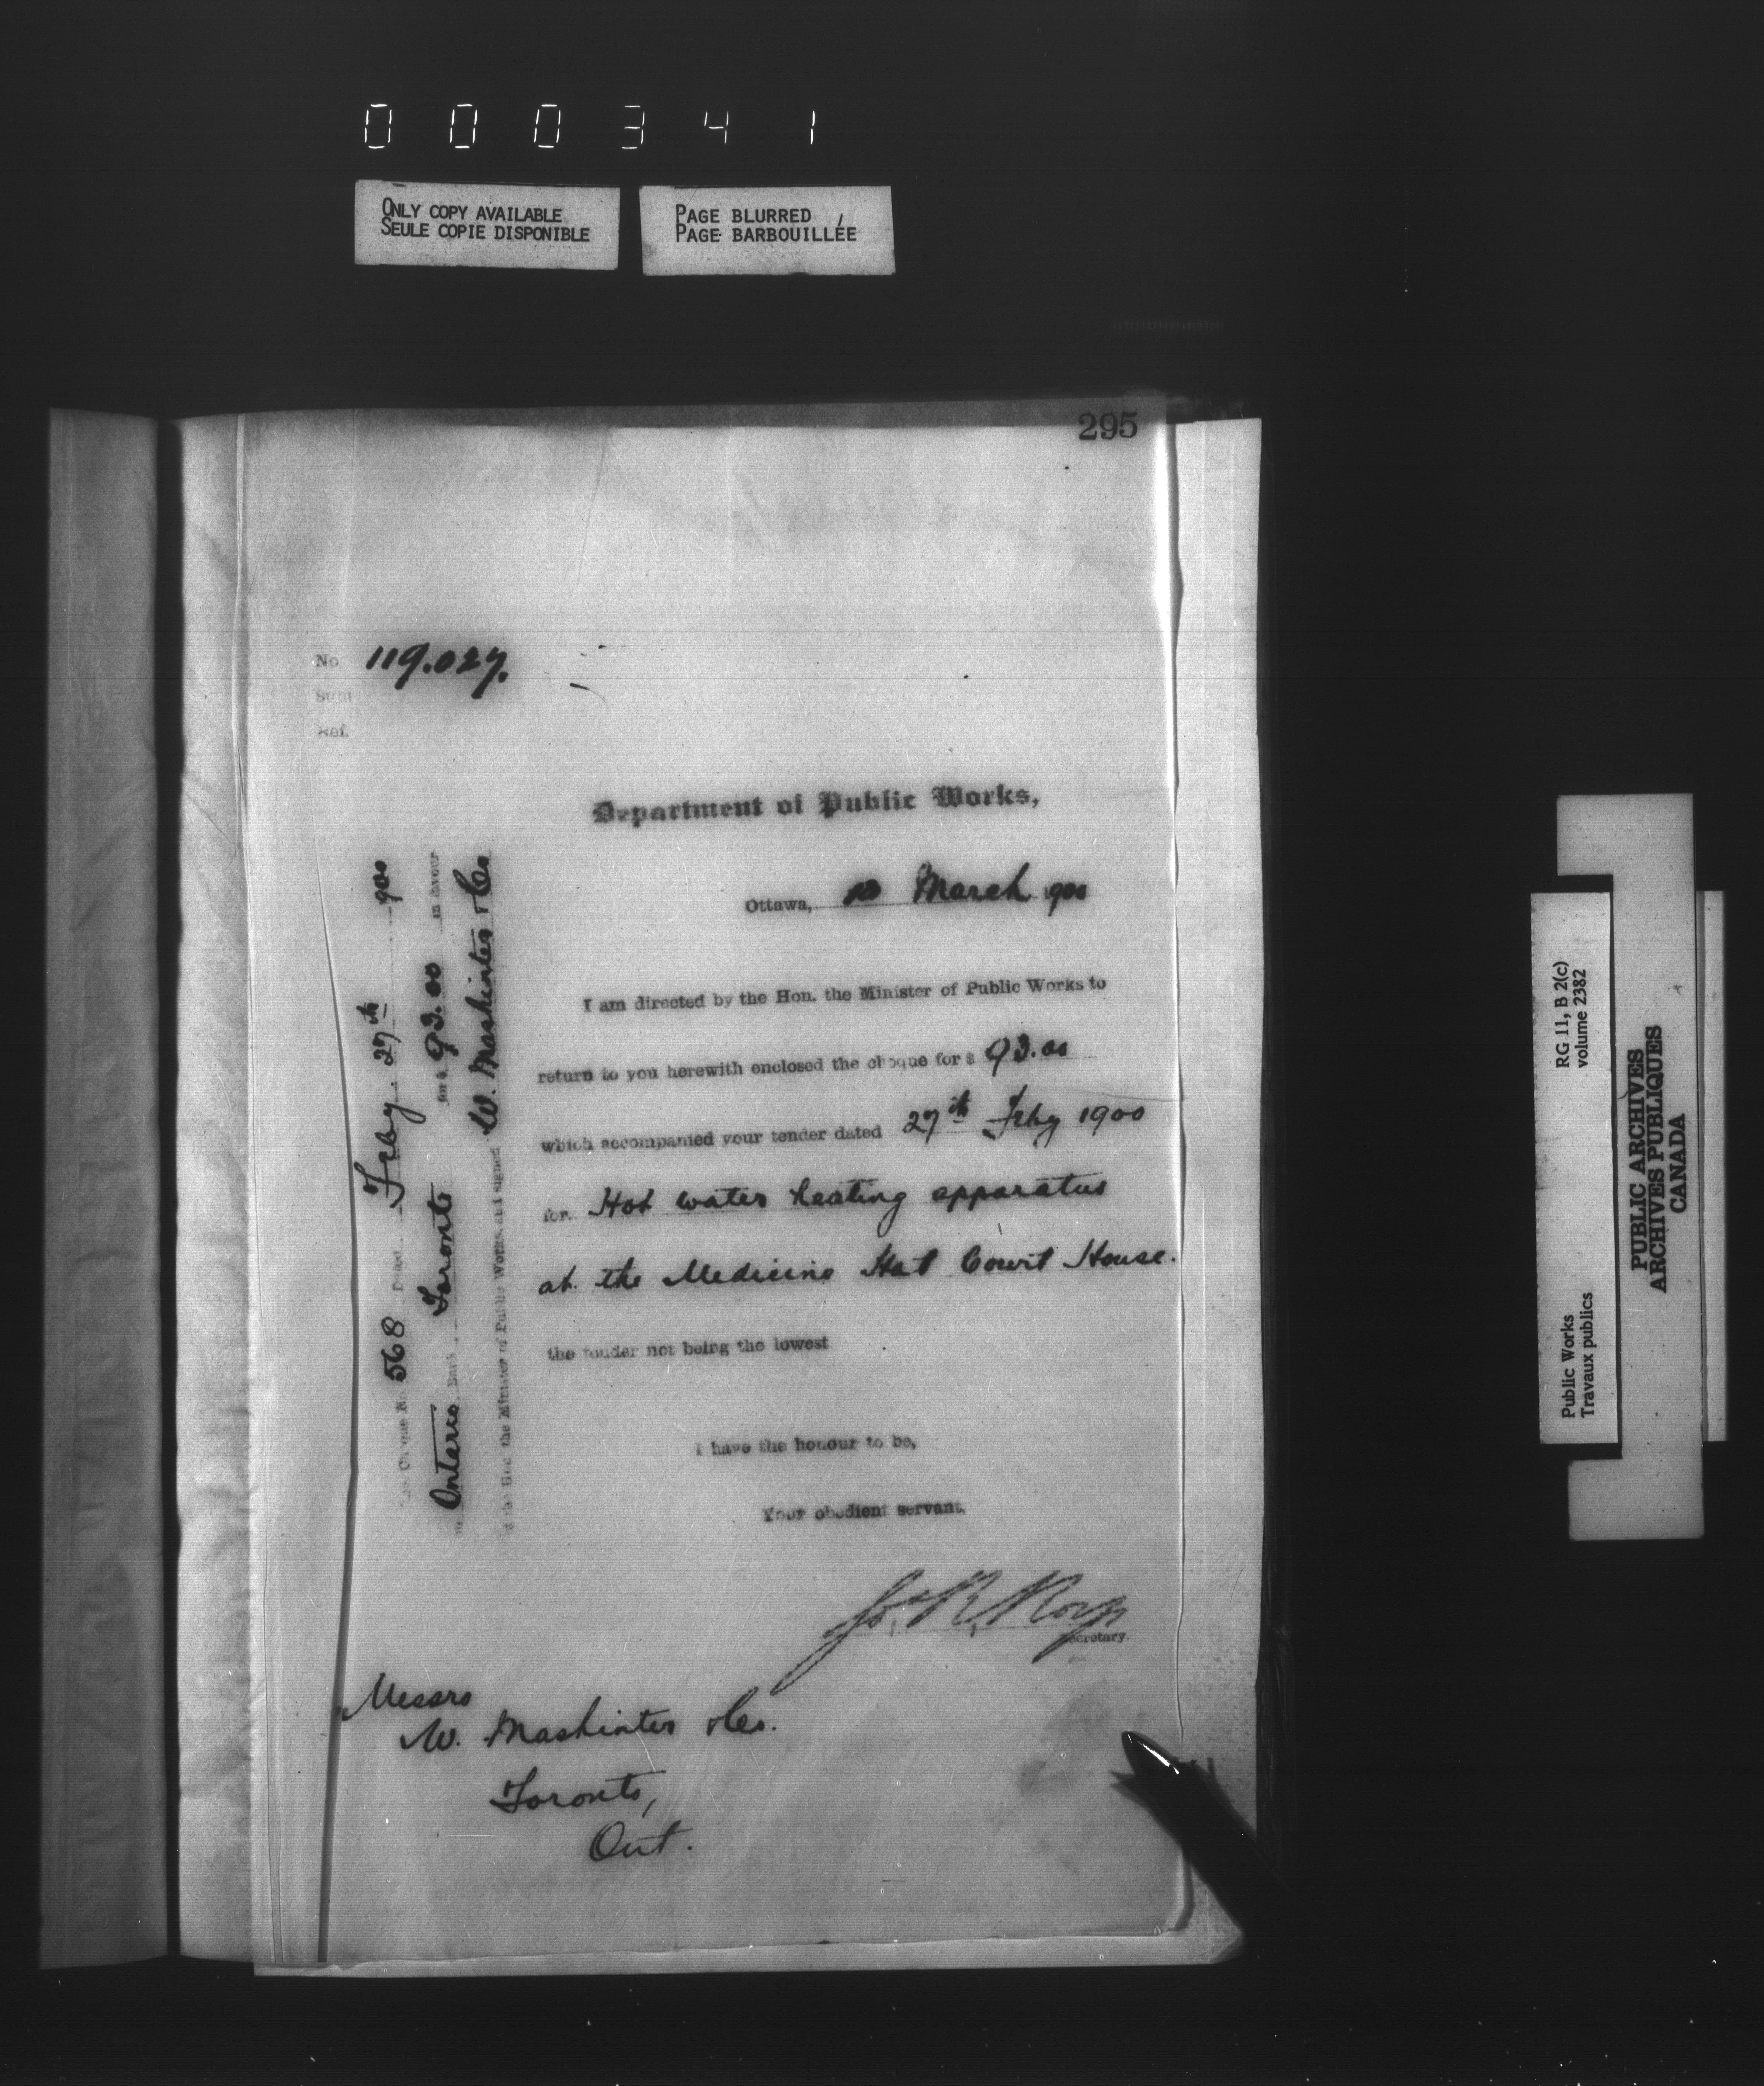 000341
ONLY COPY AVAILABLE
SEULE COPIE DISPONIBLE
PAGE BLURRED
PAGE BARBOUILLÉE
295
No 119.027.
Subt
Ref.
Department of Public Works,
Ottawa, 10 March 1900
I am directed by the Hon. the Minister of Public Works to
return to you herewith enclosed the cheque for $ 93.00
which accompanied your tender dated 27th Feby 1900
for Hot water heating apparatus
at the Medicine Hat Court House.
the tender not being the lowest
I have the honour to be,
Your obedient servant,
Jos. R. Roy
Secretary.
Messrs
W. Mashinter & Co.
Toronto,
Ont.
Cheque N. 568 Dated Feby 27th 900
on Ontario Bank Toronto for $ 93.00 in favour
of the Hon the Minister of Public Works, and signed W. Mashinter & Co
RG 11, B 2(c)
volume 2382
Public Works
Travaux publics
PUBLIC ARCHIVES
ARCHIVES PUBLIQUES
CANADA